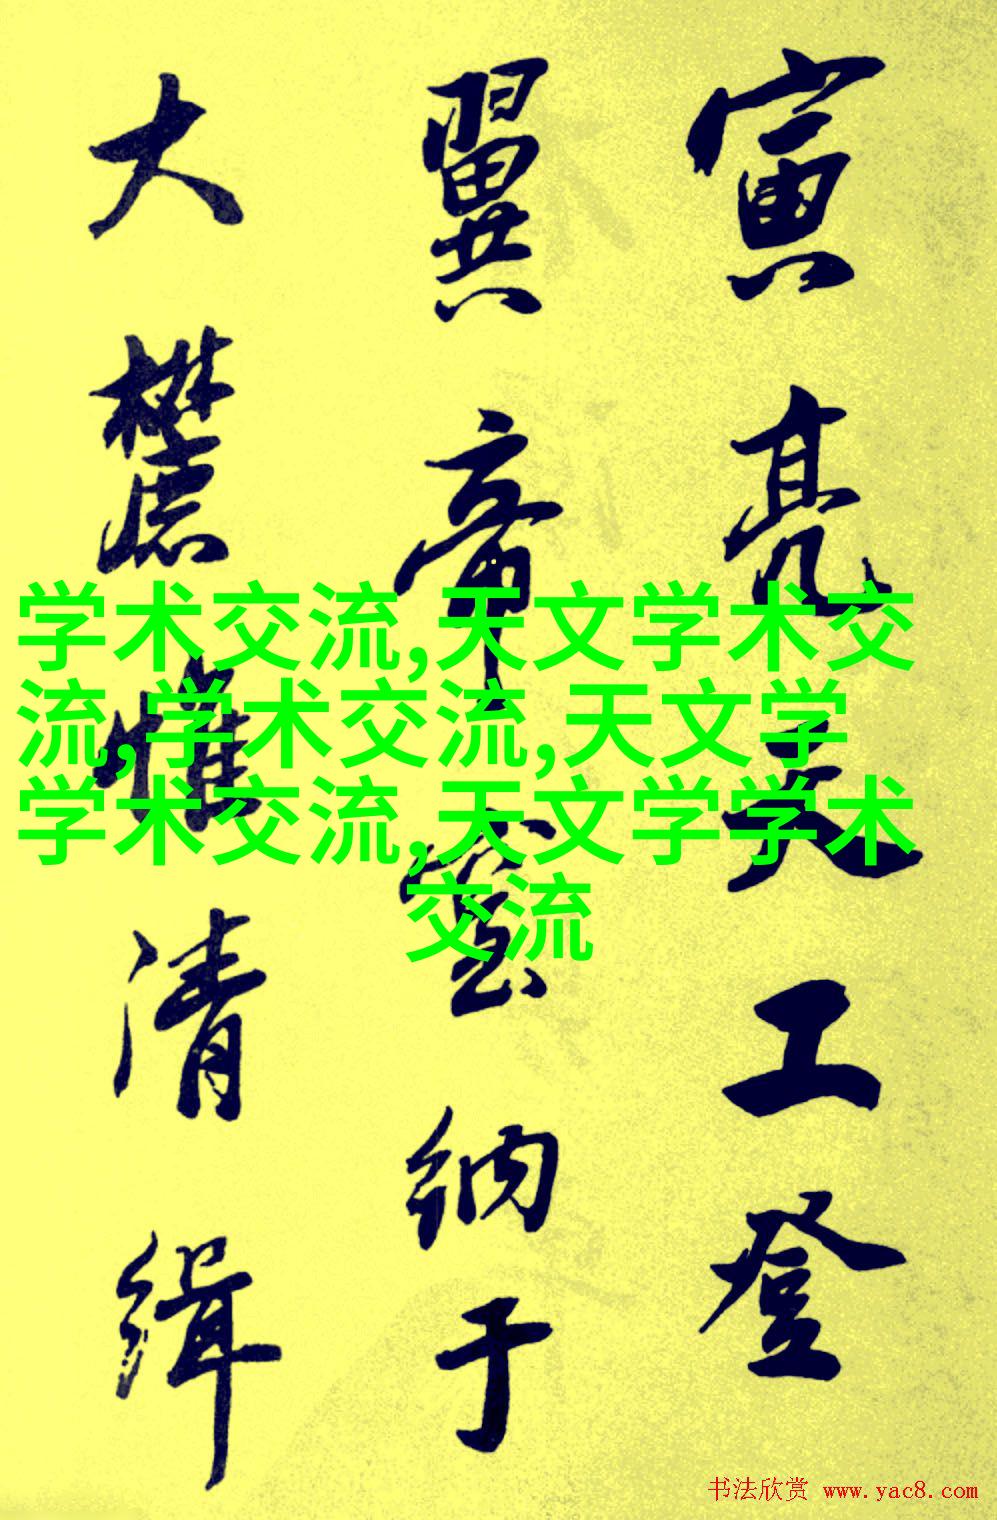 寅亮天工登
翼帝室纳于
大麓惟清缉
学术交流,天文学术交
流,学术交流,天文学
学术交流,天文学学术
交流
书法欣赏 www.yac8.com